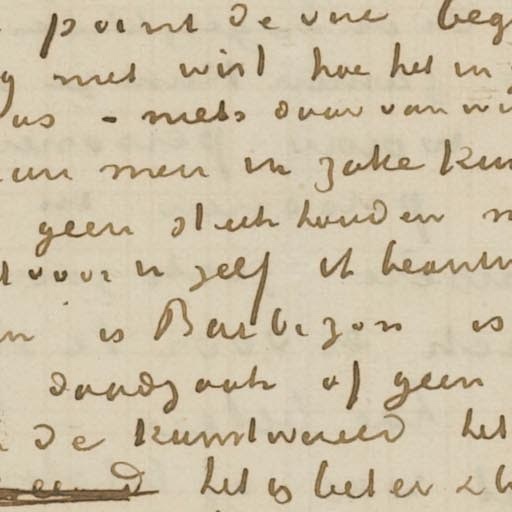 point de vue beg
niet wist hoe het in
as - niets daar van wi
an men in zake Kun
geen steek houden
voor u zelf ik beantw
is Barbizon is
daadzaak of geen
de Kunstwereld het
het is beter